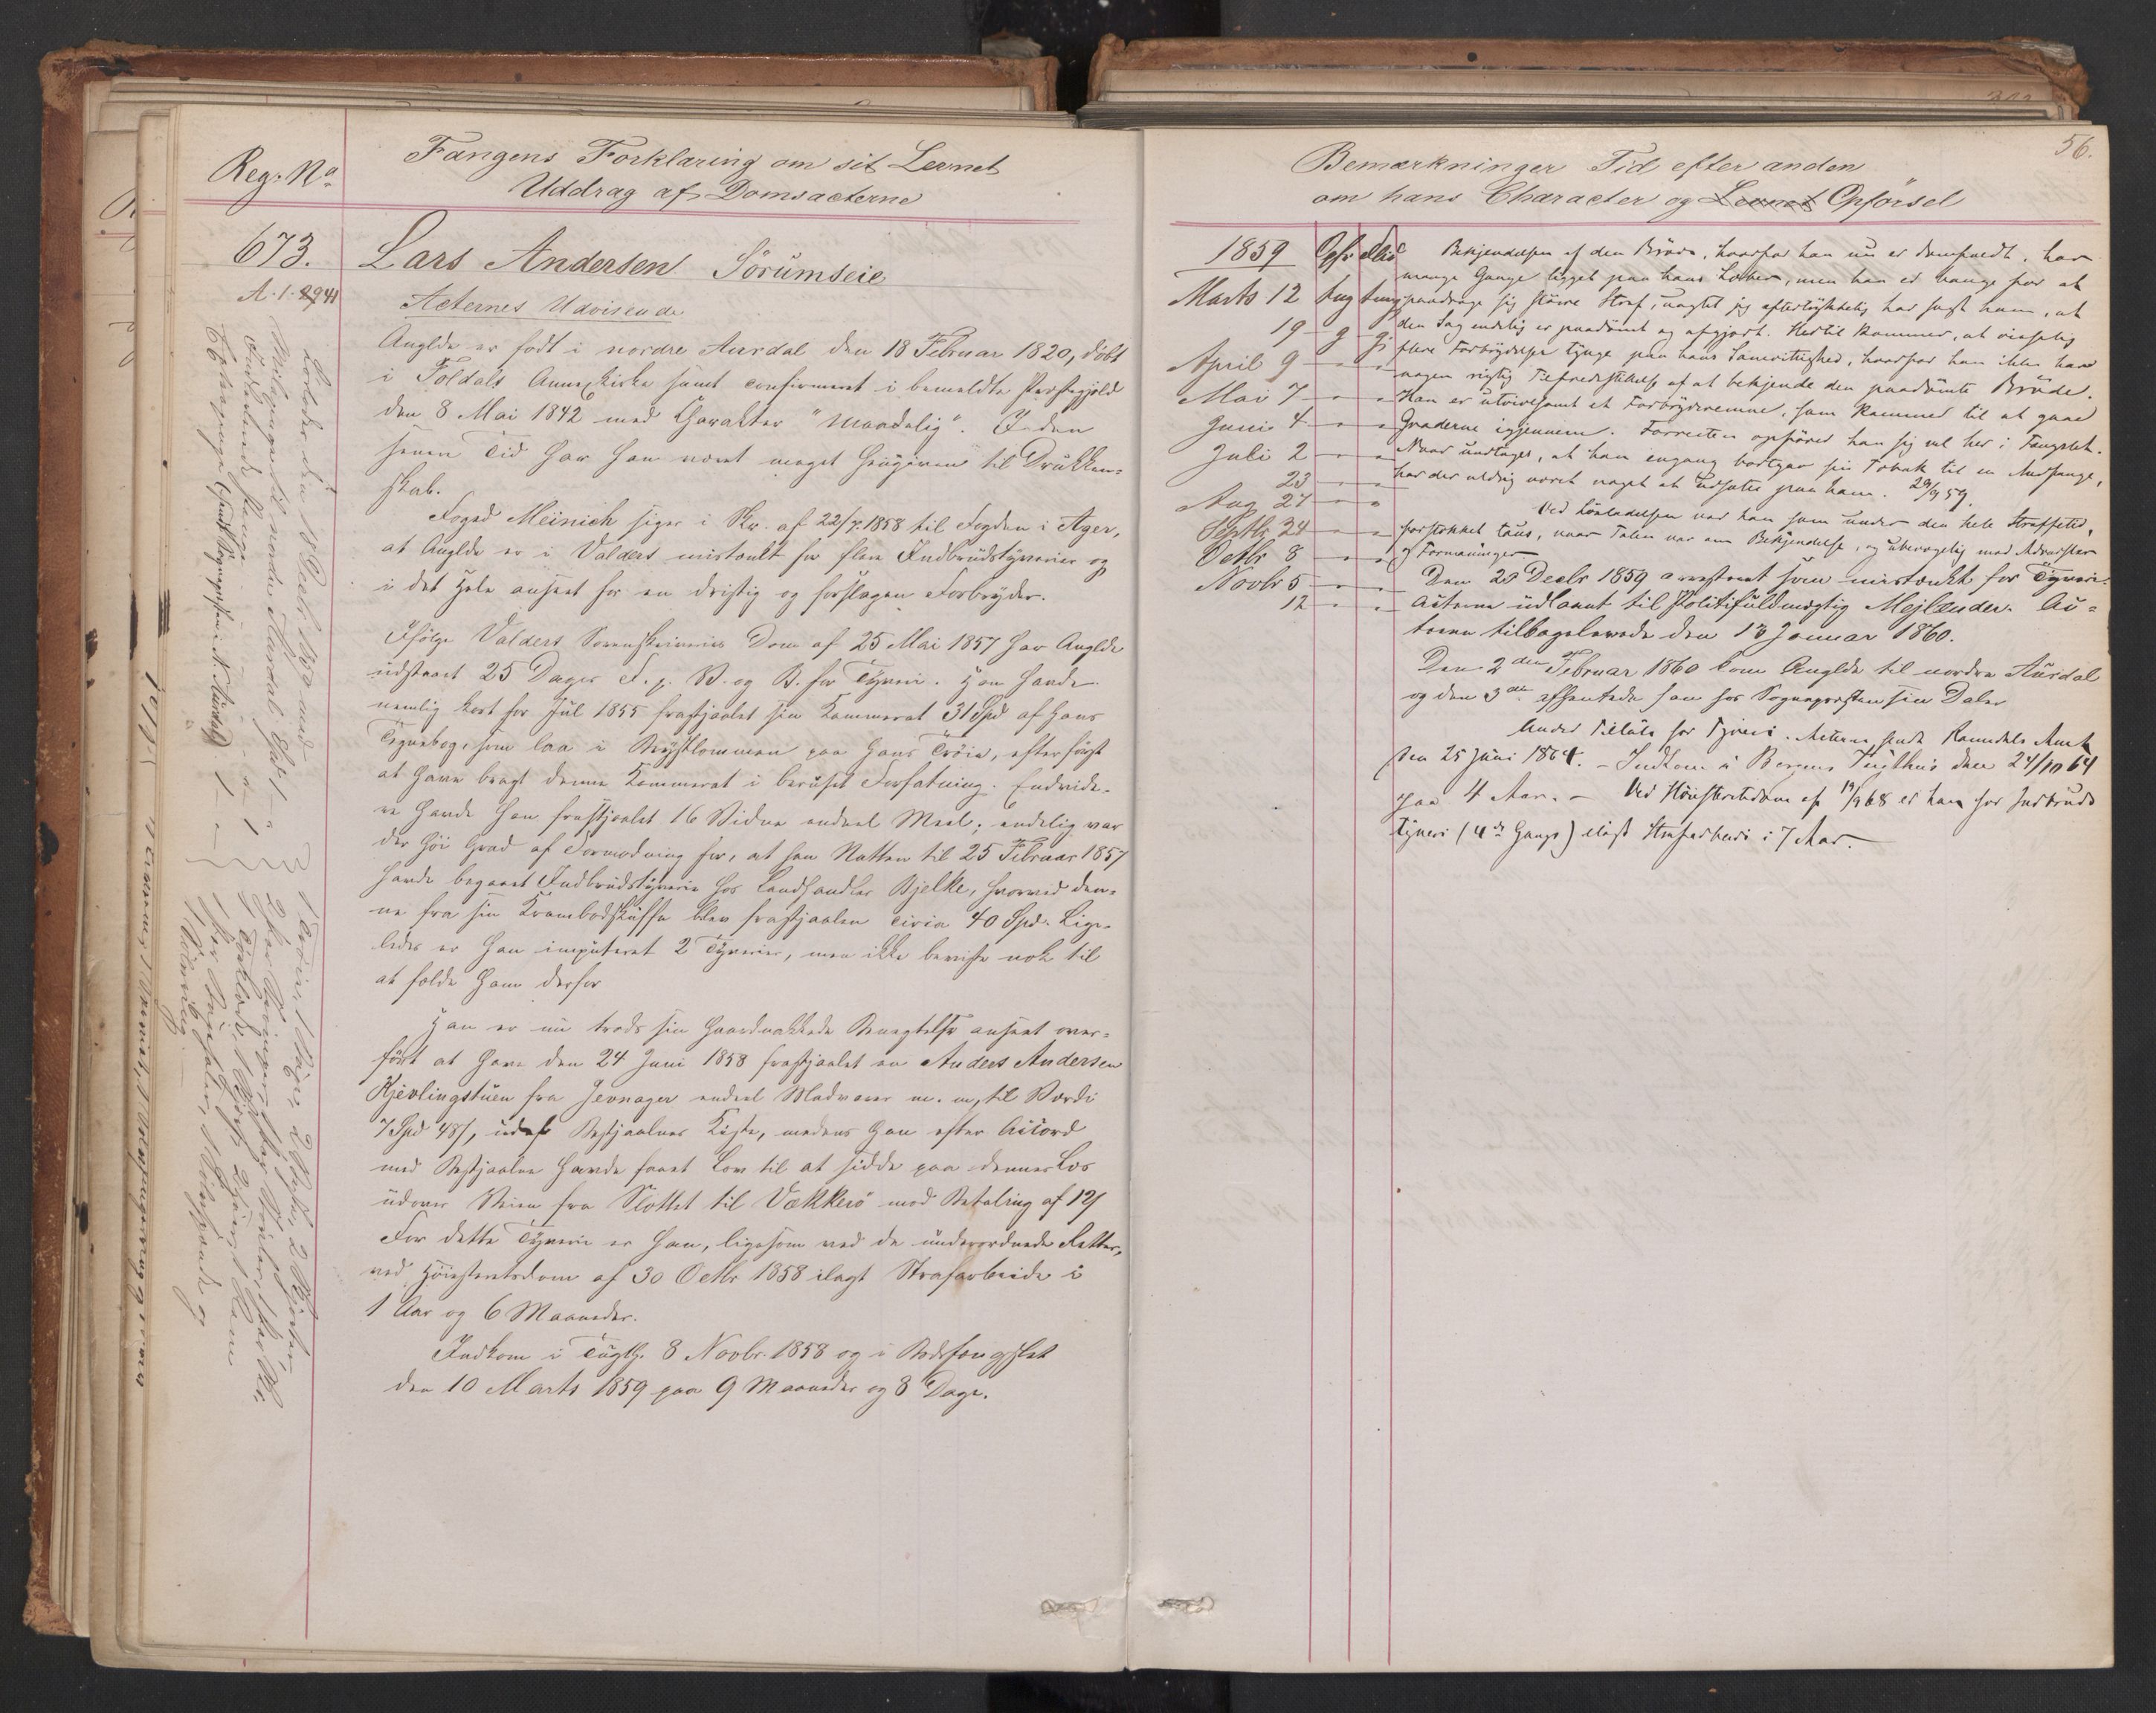 Reg. No.
Fangens Forklaring om sit Levnet
Uddrag af Domsacterne
673.
A. 1. 2941
Lars Andersen Sörumseie
Acternes Udvisende
Anglde er født i nordre Aurdal den 18 Februar 1820, döbt
i Foldals Annexkirke samt confirmeret i bemeldte Præstegjeld
den 8 Mai 1842 med Charakter "maadelig". I den
senere Tid har han været meget hengiven til Drukken-
skab.
Foged Meinich siger i Skr. af 22/7.1858 til Fogden i Ager,
at Anglde er i Valders mistænkt for flere Indbrudstyverier og
i det Hele anseet for en dristig og forslagen Forbryder.
Ifølge Valders Sorenskriveries Dom af 25 Mai 1857 har Anglde
udstaaet 25 Dages F. p. V. og B. for Tyveri. Han havde
nemlig kort for Jul 1855 frastjaalet sin Kammerat 31 Spd af hans
Tegnebog, som laa i Brystlommen paa hans Tröie, efter først
at have bragt denne Kammerat i beruset Forfatning. Endvide-
re havde han frastjaalet 16 Vidne endeel Meel; endelig var
der høi Grad af Formodning for, at han Natten til 25 Februar 1857
havde begaaet Indbrudstyverie hos Landhandler Bjelke, hvorved den-
ne fra sin Krambodskuffe blev frastjaalen circa 40 Spd. Lige-
ledes er han imputeret 2 Tyverier, men ikke beviste nok til
at fælde ham derfor
Han er nu trods sin haardnakkede Benegtelse anseet over-
ført at have den 24 Juni 1858 frastjaalet en Anders Andersen
Kjevlingstuen fra Jevnager endeel Madvarer m. m, til Værdi
7 Spd 48 s, udaf Bestjaalnes Kiste, medens han efter Accord
med Bestjaalne havde faaet Lov til at sidde paa dennes Læs
udover Veien fra Slottet til Vækkerö mod Betaling af 12 s
For dette Tyverie er han, ligesom ved de underordnede Retter,
ved Høiesteretsdom af 30 Octbr 1858 ilagt Strafarbeide i
1 Aar og 6 Maaneder.
Indkom i Tugth. 8 Novbr. 1858 og i Bodsfængslet
den 10 Marts 1859 paa 9 Maaneder og 8 Dage.
56.
Bemærkninger Tid efter anden
om hans Character og Levnet Opförsel
1859 Opf. Flid
Marts 12 Tug Tug
19 g g
April 9
Mai 7
Juni 4
Juli 2
23
Aug 27
Septbr 24
Octbr 8
Novbr 5
12
Bekjendelsen af den Bröde, hvorfor han nu er domfældt, har
mange Gange ligget paa hans Læber, men han er bange for at
paadrage sig större Straf, uagtet jeg eftertrykkelig har sagt ham, at
den Sag endelig er paadömt og afgjort. Hertil kommer, at vistnok
flere Forbrydelser tynge paa hans Samvittighed, hvorfor han ikke har
nogen rigtig Tilfredsstillelse af at bekjende den paadömte Bröde.
Han er utvivlsomt et Forbryderemne, som kommer til at gaae
Graderne igjennem. Forresten opförer han sig vel her i Fængslet.
Naar undtages, at han engang bortgav sin Tobak til en Medfange,
har der aldrig været noget at udsætte paa ham. 29/9 59.
Ved Lösladelsen var han som under den hele Straffetid,
forstokket taus, naar Talen var om Bekjendelse, og ubevægelig mod Advarsler
og Formaninger
Den 20 Decbr 1859 arresteret som mistænkt for Tyveri.
Acterne udlaant til Politifuldmægtig Mejlænder. Ac-
terne tilbageleverede den 13 Januar 1860.
Den 2den Februar 1860 kom Anglde til nordre Aurdal
og den 3die afhentede han hos Sognepresten sin Daler
Under Tiltale for Tyveri. Acterne sendt Romsdals Amt
den 25 Juni 1864. – Indkom i Bergens Tugthus den 24/10 64
paa 4 Aar. – Ved Höiesteretsdom af 19/9 68 er han for Indbruds
tyveri (4de Gang) ilagt Strafarbeide i 7 Aar. –